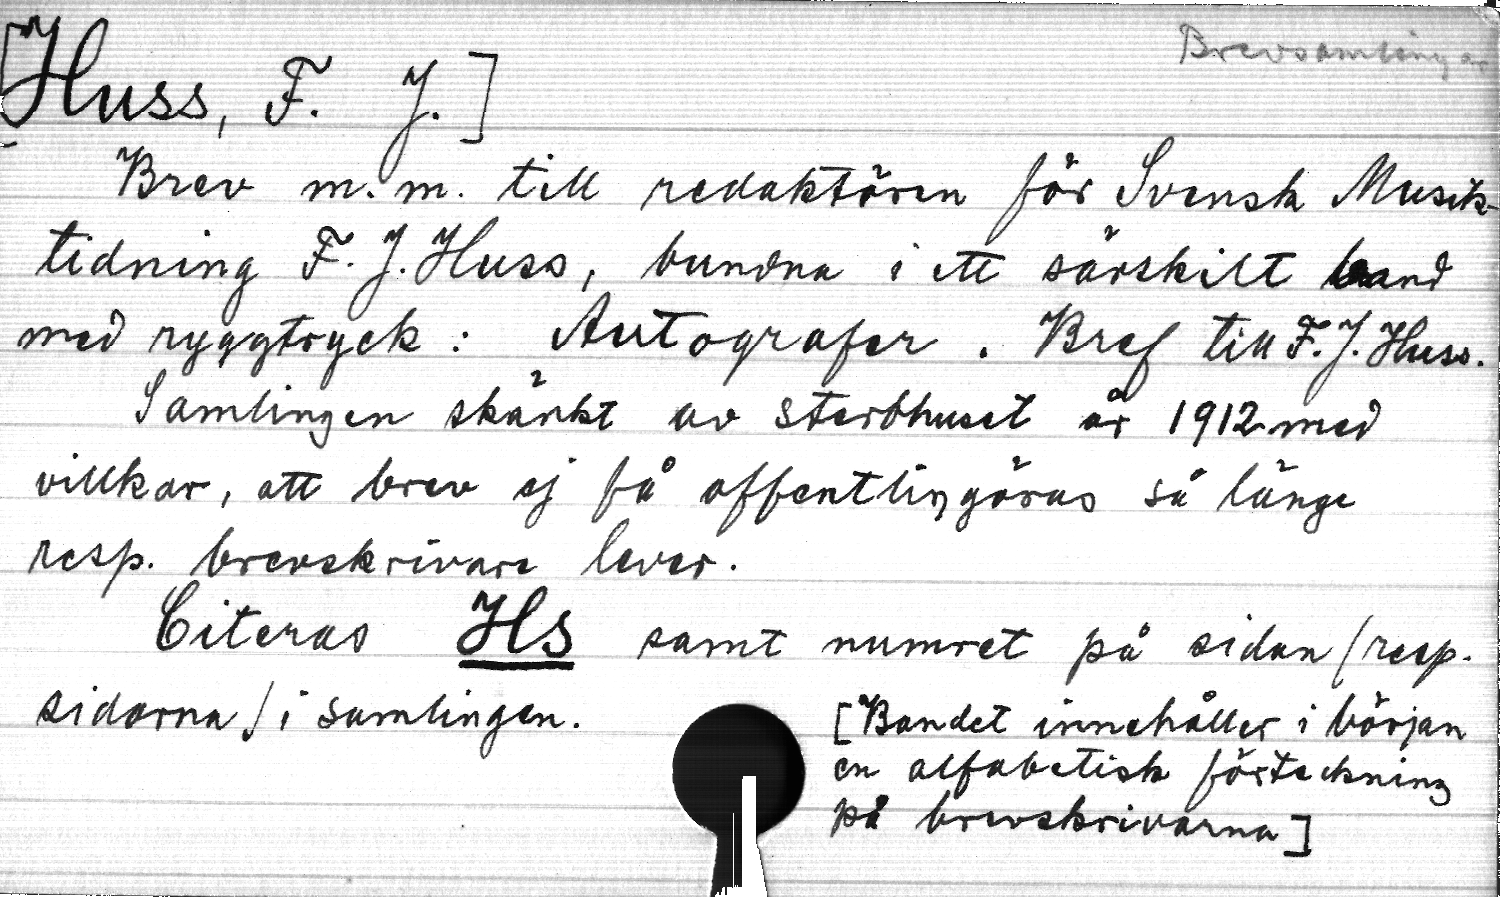 Brevsamlingar
[Huss, F. J.]
Brev m. m. till redaktören för Svensk Musik-
tidning F. J. Huss, bundna i ett särskilt band
med ryggtryck: Autografer. Bref till F. J. Huss.
Samlingen skänkt av sterbhuset år 1912 med
villkor, att brev ej få offentliggöras så länge
resp. brevskrivare lever.
Citeras Hs samt numret på sidan /resp.
sidorna/ i samlingen.
[Bandet innehåller i början
en alfabetisk förteckning
på brevskrivarna]